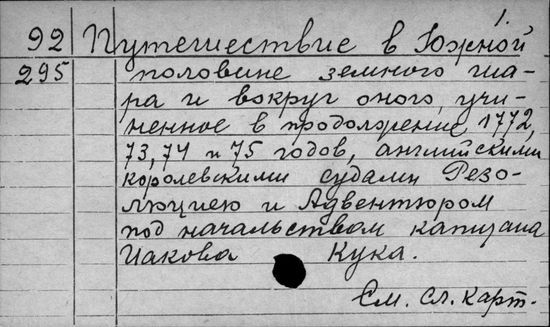 1.
92 Путешествие в Южной
295 половине земного ша-
ра и вокруг оного, учи-
ненное в продолжение 1772,
73, 74 и 75 годов, английскими
королевскими судами Резо-
люциею и Адвентюром
под начальством капитана
Иакова Кука.
См. сл. карт.